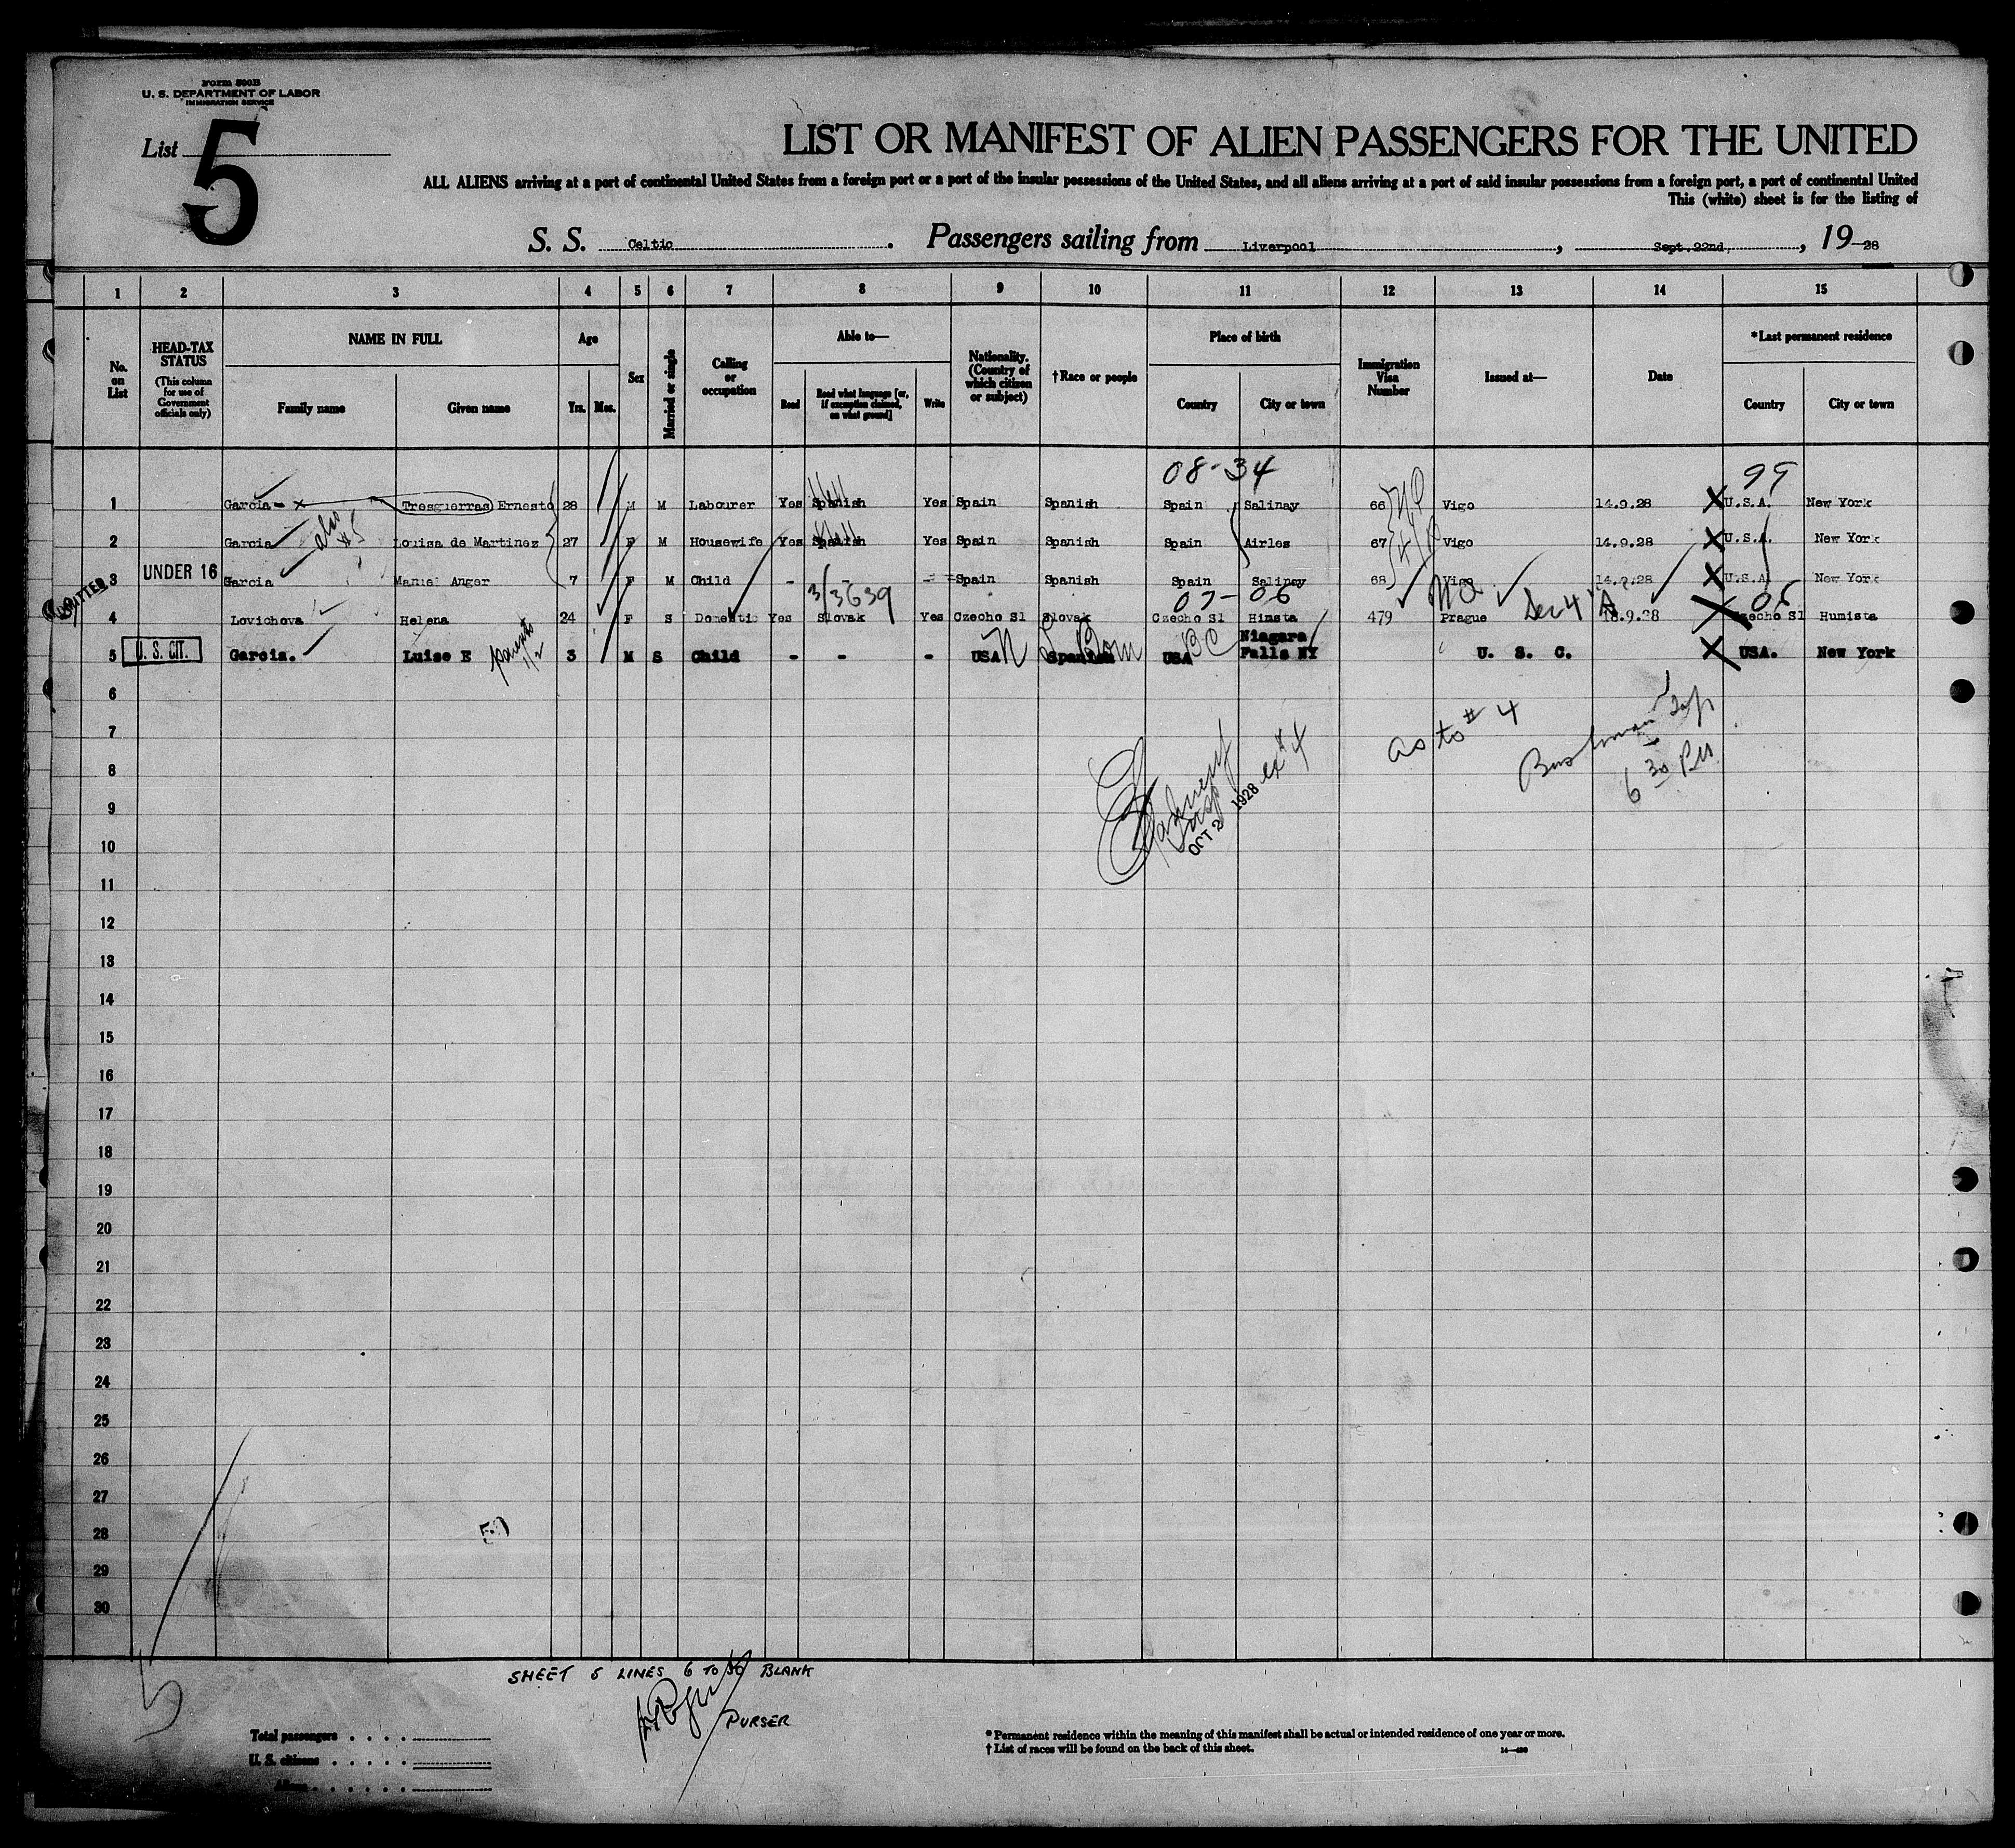 Form 500B
U. S. DEPARTMENT OF LABOR
IMMIGRATION SERVICE
List 5
LIST OR MANIFEST OF ALIEN PASSENGERS FOR THE UNITED
ALL ALIENS arriving at a port of continental United States from a foreign port or a port of the insular possessions of the United States, and all aliens arriving at a port of said insular possessions from a foreign port, a port of continental United
This (white) sheet is for the listing of
S. S. Celtic. Passengers sailing from Liverpool, Sept. 22nd, 19 28
1 2 3 4 5 6 7 8 9 10 11 12 13 14 15
No. on List
HEAD-TAX STATUS (This column for use of Government officials only)
NAME IN FULL
Family name Given name
Age
Yrs. Mos.
Sex
Married or single
Calling or occupation
Able to—
Read Read what language [or, if exemption claimed, on what ground] Write
Nationality. (Country of which citizen or subject)
†Race or people
Place of birth
Country City or town
Immigration Visa Number
Issued at—
Date
*Last permanent residence
Country City or town
08-34 99
1 Garcia - x Tresguerras Ernesto 28 M M Labourer Yes Spanish Yes Spain Spanish Spain Salinay 66 Vigo 14.9.28 X U.S.A. New York
also #5
2 Garcia Louisa de Martinez 27 F M Housewife Yes Spanish Yes Spain Spanish Spain Airles 67 Vigo 14.9.28 X U.S.A. New York
3 UNDER 16 Garcia Manuel Anger 7 F M Child - - - Spain Spanish Spain Salinay 68 Vigo 14.9.28 X U.S.A. New York
ADMITTED
3/3639 07-06 Sec 4 06
4 Lovichova Helena 24 F S Domestic Yes Slovak Yes Czecho Sl Slovak Czecho Sl Hinsta 479 Prague 18.9.28 X Czecho Sl Humista
5 U. S. CIT. Garcia. Luise E parents 1/2 3 M S Child - - - USA N Spanish Born USA BC Niagara Falls NY U. S. C. X USA. New York
6
7
8
9
10
11
12
13
14
15
16
17
18
19
20
21
22
23
24
25
26
27
28
29
30
as to # 4
6 30 PM
Insp
OCT 2 1928 ex # 4
50
5
SHEET 5 LINES 6 TO 30 BLANK
PURSER
Total passengers
U. S. citizens
Aliens
* Permanent residence within the meaning of this manifest shall be actual or intended residence of one year or more.
† List of races will be found on the back of this sheet.